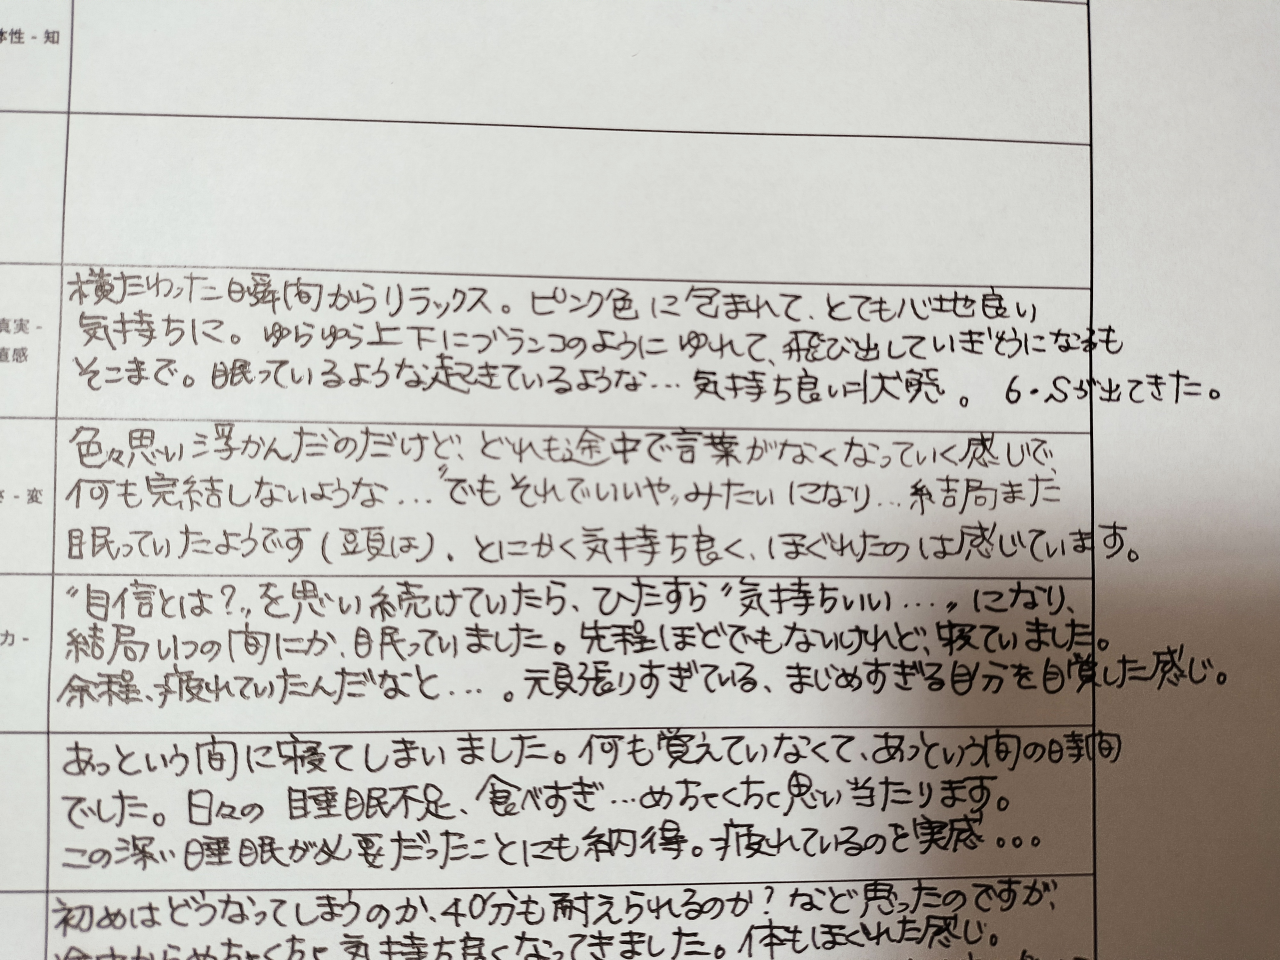 体性 - 知
真実 -
直感
横たわった瞬間からリラックス。ピンク色に包まれて、とても心地良い
気持ちに。ゆらゆら上下にブランコのようにゆれて、飛び出していきそうになるも
そこまで。眠っているような起きているような…気持ち良い状態。 6.Sが出てきた。
さ - 変
色々思い浮かんだのだけど、どれも途中で言葉がなくなっていく感じで、
何も完結しないような…〝でもそれでいいや〟みたいになり…結局また
眠っていたようです(頭は)。とにかく気持ち良く、ほぐれたのは感じています。
力 -
〝自信とは?〟を思い続けていたら、ひたすら〝気持ちいい…〟になり、
結局いつの間にか、眠っていました。先程ほどでもないけれど、寝ていました。
余程、疲れていたんだなと…。頑張りすぎている、まじめすぎる自分を自覚した感じ。
あっという間に寝てしまいました。何も覚えていなくて、あっという間の時間
でした。日々の睡眠不足、食べすぎ…めちゃくちゃ思い当たります。
この深い睡眠が必要だったことにも納得。疲れているのを実感。。。
初めはどうなってしまうのか、40分も耐えられるのか?など思ったのですが、
途中からめちゃくちゃ気持ち良くなってきました。体もほぐれた感じ。